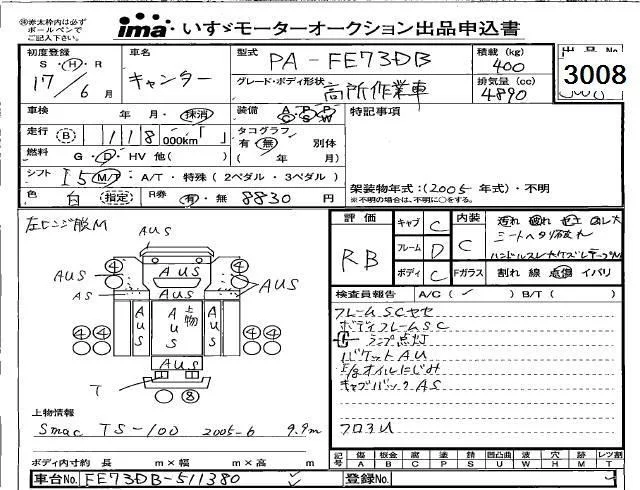 ㊟赤太枠内は必ず
ボールペンで
ご記入下さい。
ima いすゞモーターオークション出品申込書
初度登録
S・H・R
17年6月
車名
キャンター
型式 PA-FE73DB
グレード・ボディ形状 高所作業車
積載 (kg)
400
排気量 (cc)
4890
出品No
3008
車検 年・月・抹消
装備 A C P S P W
特記事項
走行 B 118 000km「」
タコグラフ
有・無 別体
( 年 月)
燃料 G・D・HV 他( )
シフト I5 M/T・A/T・特殊 (2ペダル・3ペダル)
架装物年式:(2005年式)・不明
※不明の場合は、不明に○をする。
色 白 (指定)
R券 有・無 8830円
左ヒンジ脱M
AUS
AUS
AUS
AUS
AS
AUS
AUS
上物
AUS
AUS
④
④
④④
④④
⑧
T
評価 RB
キャブ C
フレーム D
ボディ C
内装 C
汚れ 破れ セエ
シートヘタリ破れ
Fガラス 割れ 線 点傷 イバリ
検査員報告 A/C (✓) B/T ( )
フレームSCサセ
ボディフレームSC
ランプ点灯
バケットAU
E/gオイルにじみ
キャブバックAS
フロアU
上物情報
Smac TS-100 2005-6 9.9m
ボディ内寸約 長 m×幅 m×高 m
記号 傷 A 板金 B 腐 C 塗 P 錆 S 凹凸曲 U 波 W 穴 H 歪 M レツ割 T
車台No. FE73DB-511380
登録No.